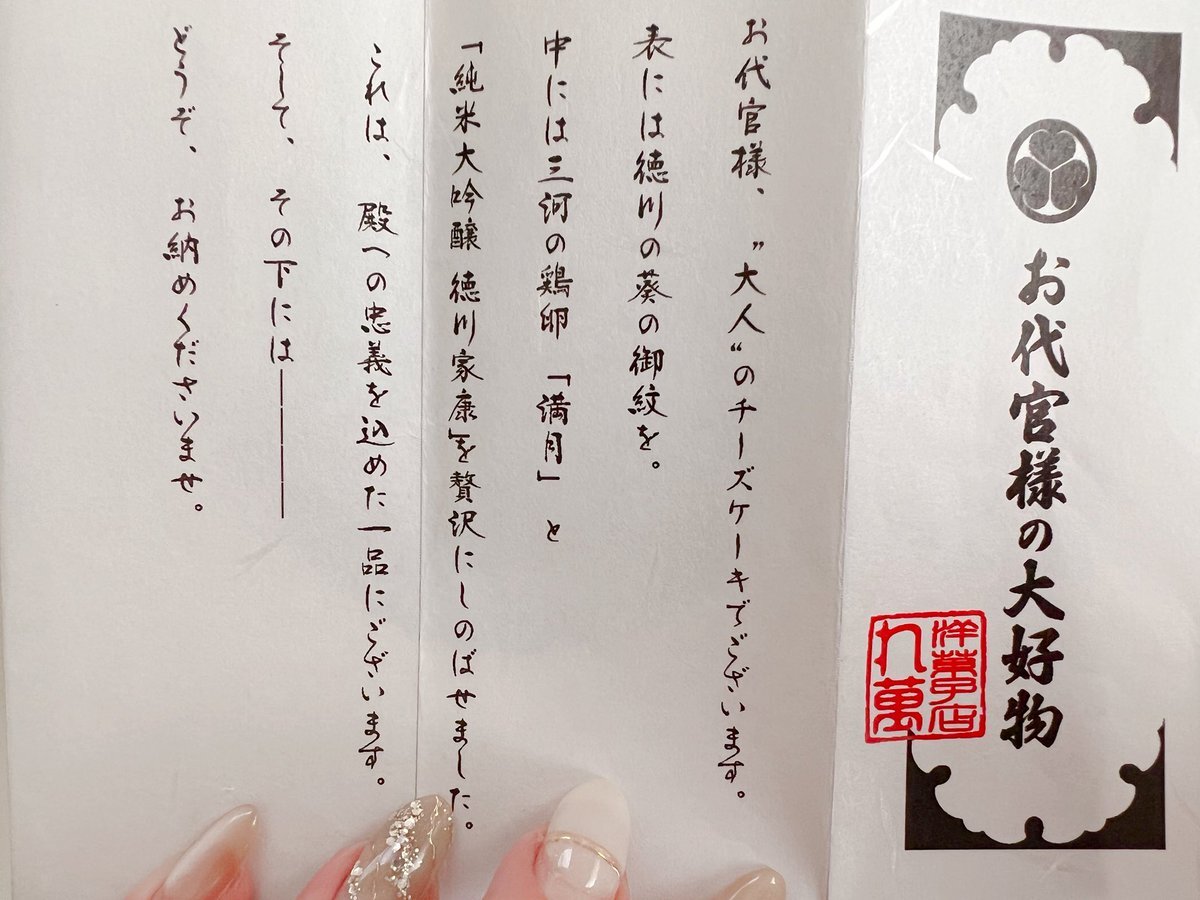 お代官様の大好物
洋菓子店
れ萬
お代官様、〝大人〟のチーズケーキでございます。
表には徳川の葵の御紋を。
中には三河の鶏卵「満月」と
「純米大吟醸 徳川家康」を贅沢にしのばせました。
これは、殿への忠義を込めた一品にございます。
そして、その下には――――
どうぞ、お納めくださいませ。